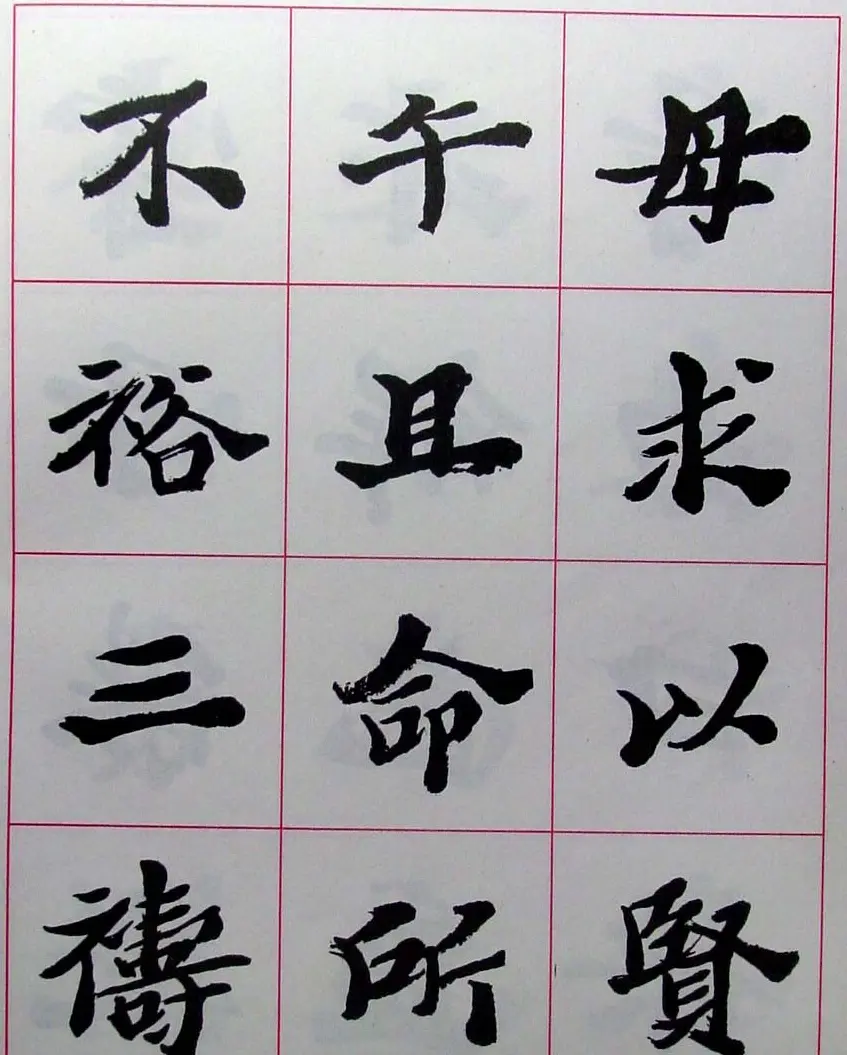 母求以賢
午且命所
不裕三禱